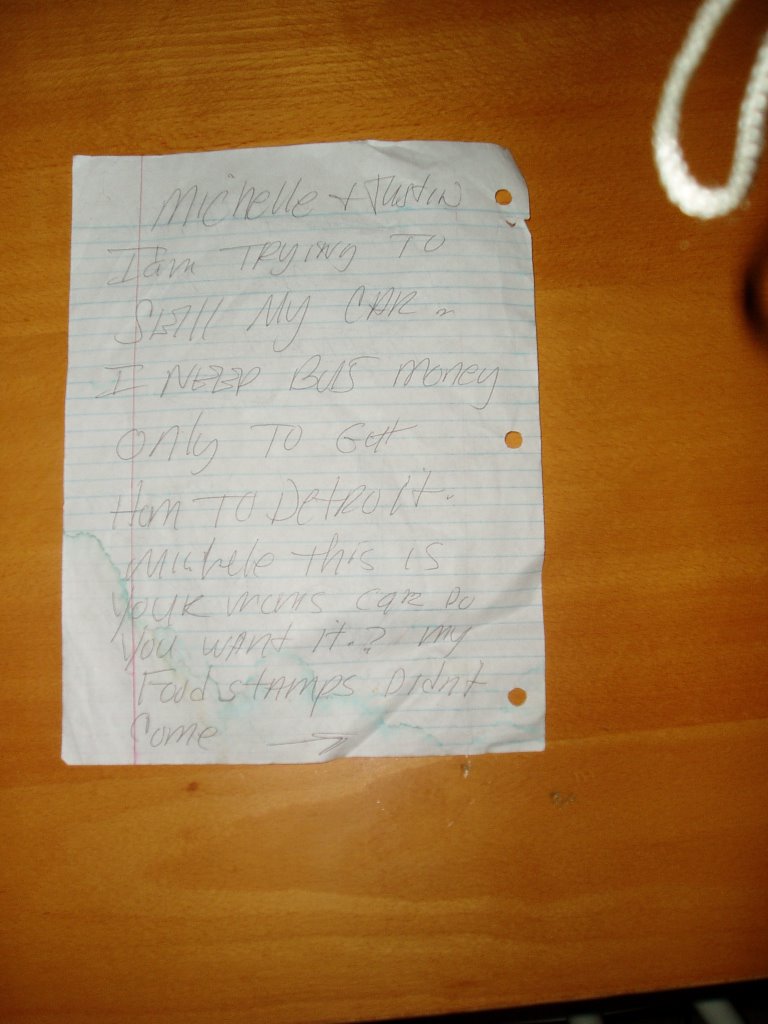 Michelle + Justin
I am TRYING TO
SEll MY CAR.
I NEED BUS money
only TO Get
Hom TO Detroit.
Michele this is
your moms car Do
you want it.? my
Food stamps Didnt
Come →